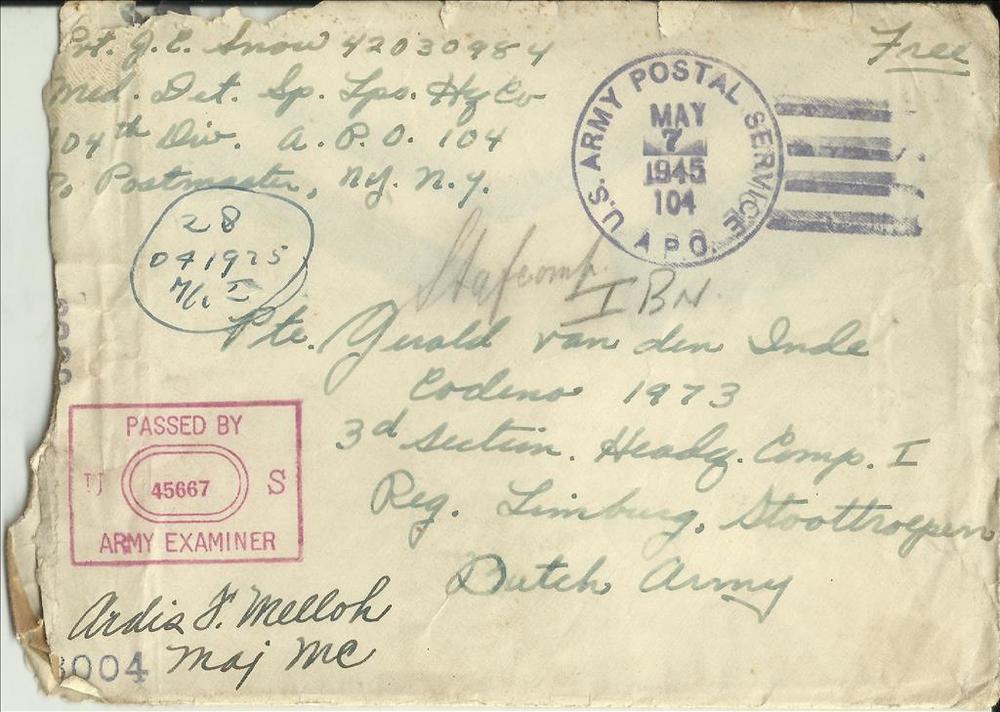 Pvt. J. E. Snow 42030984
Med. Det. Sp. Tps. Hq Co
104th Div. A. P. O. 104
Postmaster, N.Y. N.Y.
Free
U.S. ARMY POSTAL SERVICE
MAY
7
1945
104
A.P.O.
28
041925
Stafcomp.
I BN.
Pte. Gerald van den Inde
Codeno 1973
3d Section. Headq. Comp. I
Reg. Limburg, Stoottroepen
Dutch Army
PASSED BY
U 45667 S
ARMY EXAMINER
Ardis F. Melloh
Maj MC
3004